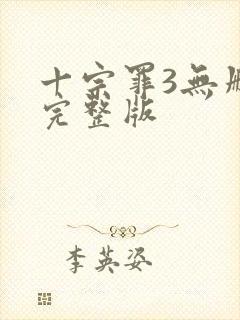 十宗罪3無
完整版
李英姿